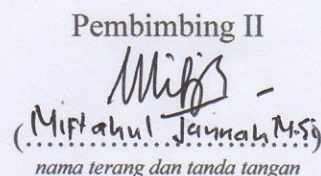 Pembimbing II
(Miftahul Jannah M.Si)
nama terang dan tanda tangan